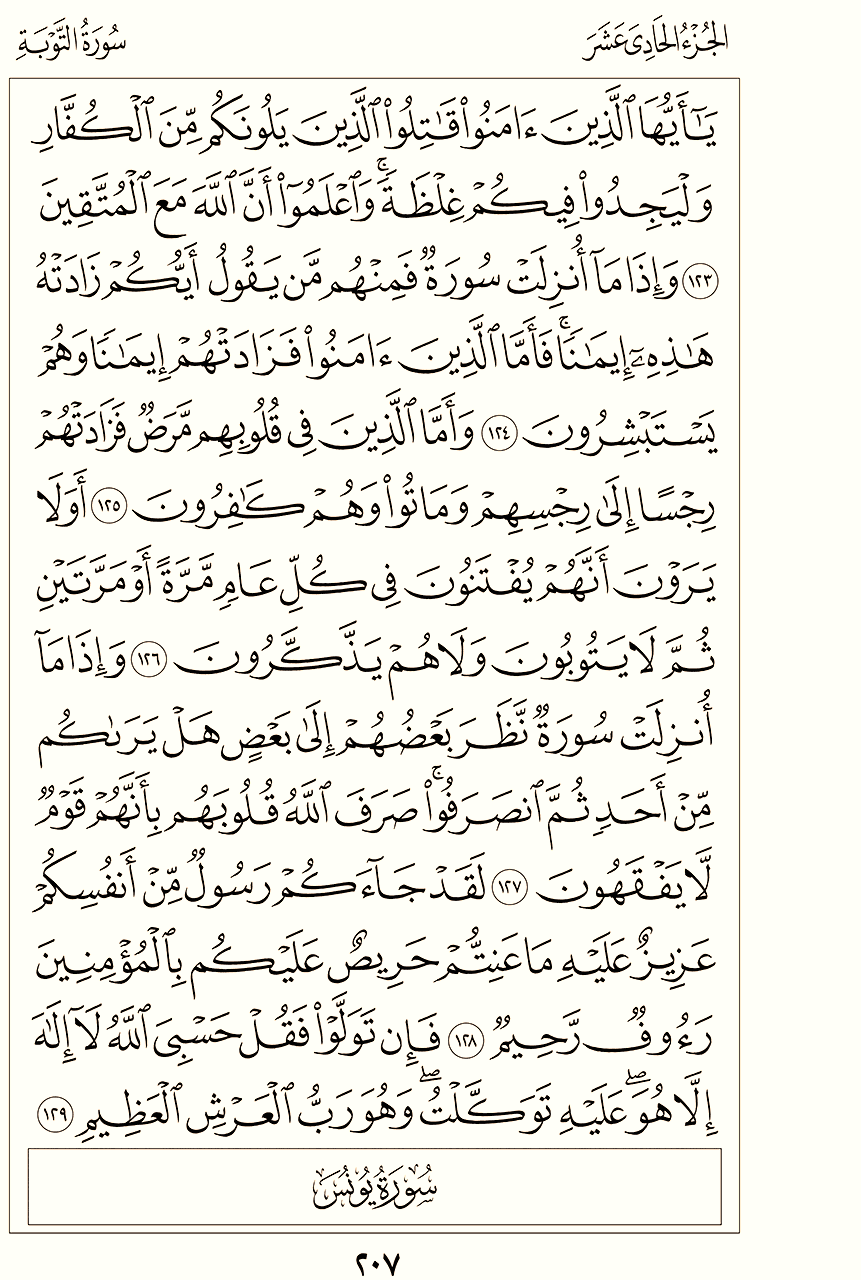 الجُزْءُ الحَادِى عَشَرَ
سُورَةُ التَّوْبَةِ
يَٰٓأَيُّهَا ٱلَّذِينَ ءَامَنُوا۟ قَٰتِلُوا۟ ٱلَّذِينَ يَلُونَكُم مِّنَ ٱلْكُفَّارِ
وَلْيَجِدُوا۟ فِيكُمْ غِلْظَةً ۚ وَٱعْلَمُوٓا۟ أَنَّ ٱللَّهَ مَعَ ٱلْمُتَّقِينَ
١٢٣ وَإِذَا مَآ أُنزِلَتْ سُورَةٌ فَمِنْهُم مَّن يَقُولُ أَيُّكُمْ زَادَتْهُ
هَٰذِهِۦٓ إِيمَٰنًا ۚ فَأَمَّا ٱلَّذِينَ ءَامَنُوا۟ فَزَادَتْهُمْ إِيمَٰنًا وَهُمْ
يَسْتَبْشِرُونَ ١٢٤ وَأَمَّا ٱلَّذِينَ فِى قُلُوبِهِم مَّرَضٌ فَزَادَتْهُمْ
رِجْسًا إِلَىٰ رِجْسِهِمْ وَمَاتُوا۟ وَهُمْ كَٰفِرُونَ ١٢٥ أَوَلَا
يَرَوْنَ أَنَّهُمْ يُفْتَنُونَ فِى كُلِّ عَامٍ مَّرَّةً أَوْ مَرَّتَيْنِ
ثُمَّ لَا يَتُوبُونَ وَلَا هُمْ يَذَّكَّرُونَ ١٢٦ وَإِذَا مَآ
أُنزِلَتْ سُورَةٌ نَّظَرَ بَعْضُهُمْ إِلَىٰ بَعْضٍ هَلْ يَرَىٰكُم
مِّنْ أَحَدٍ ثُمَّ ٱنصَرَفُوا۟ ۚ صَرَفَ ٱللَّهُ قُلُوبَهُم بِأَنَّهُمْ قَوْمٌ
لَّا يَفْقَهُونَ ١٢٧ لَقَدْ جَآءَكُمْ رَسُولٌ مِّنْ أَنفُسِكُمْ
عَزِيزٌ عَلَيْهِ مَا عَنِتُّمْ حَرِيصٌ عَلَيْكُم بِٱلْمُؤْمِنِينَ
رَءُوفٌ رَّحِيمٌ ١٢٨ فَإِن تَوَلَّوْا۟ فَقُلْ حَسْبِىَ ٱللَّهُ لَآ إِلَٰهَ
إِلَّا هُوَ ۖ عَلَيْهِ تَوَكَّلْتُ ۖ وَهُوَ رَبُّ ٱلْعَرْشِ ٱلْعَظِيمِ ١٢٩
سُورَةُ يُونُسَ
٢٠٧